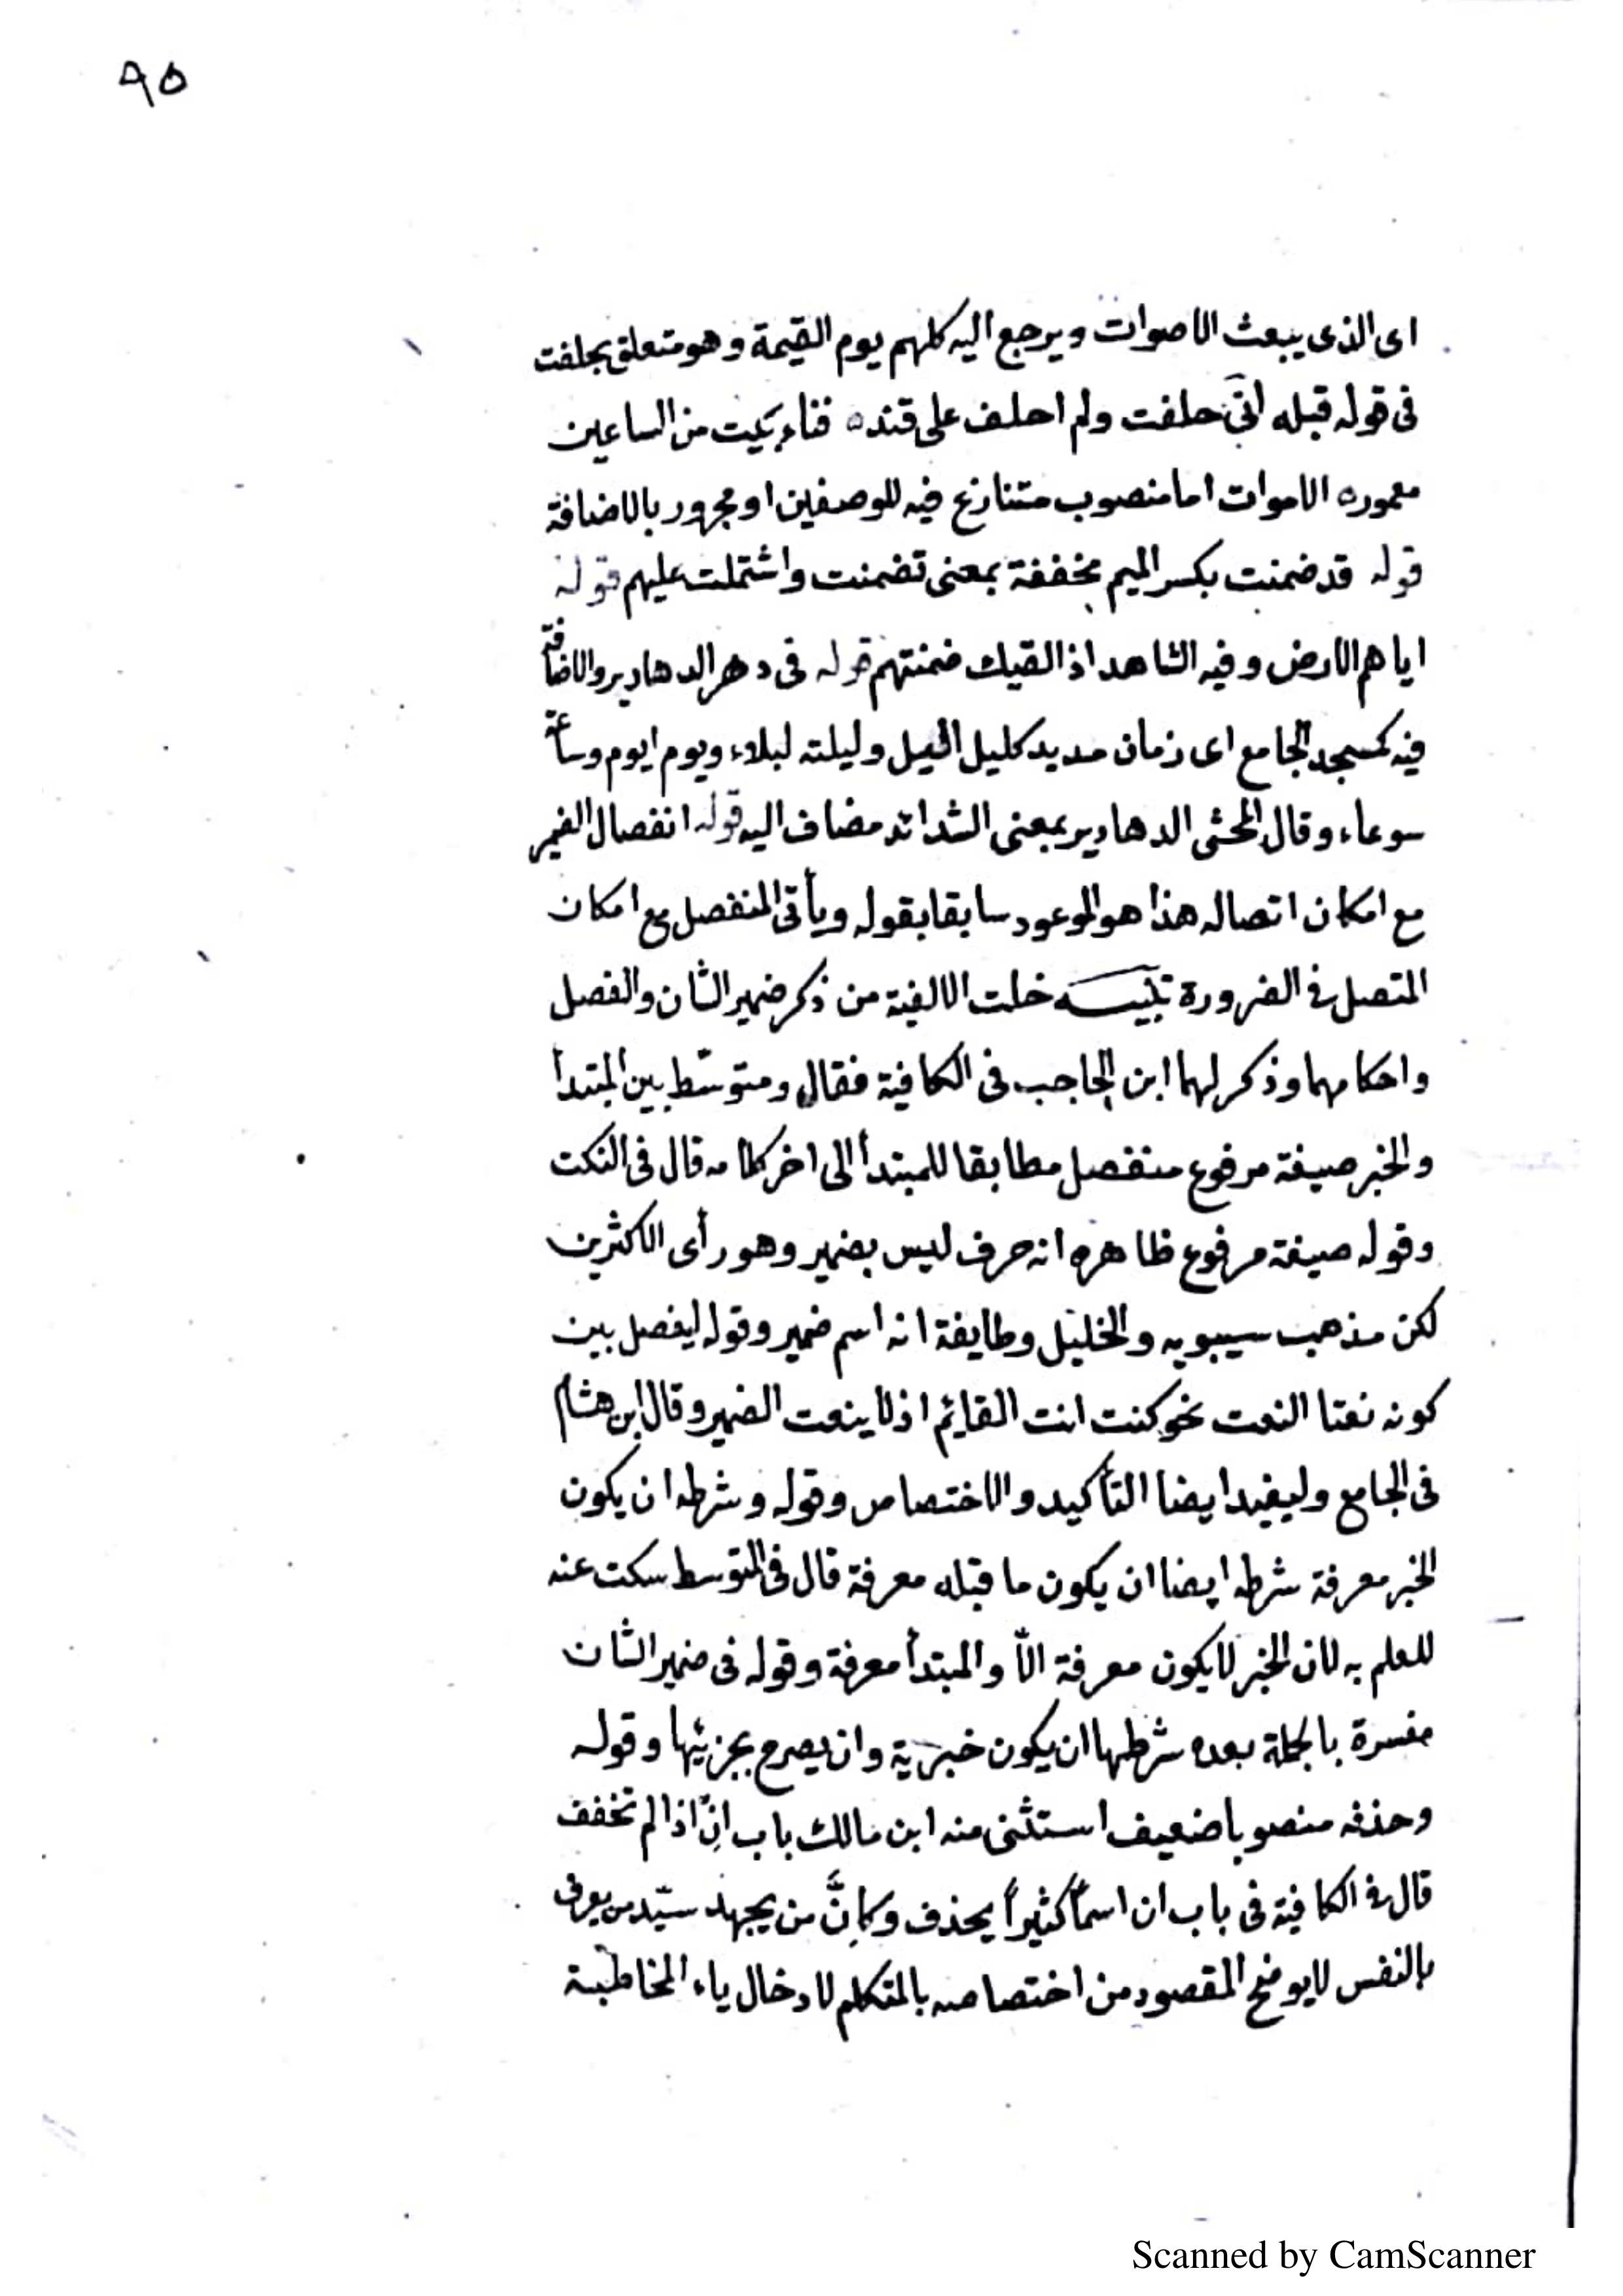 ٩٥
اى الذى يبعث الاصوات ويرجع اليه كلهم يوم القيمة وهو متعلق بحلفت
فى قوله قبله انى حلفت ولم احلف على فنده فناء بيت من الساعين
معموره الاموات اما منصوب متنازع فيه للوصفين او مجرور بالاضافة
قوله قد ضمنت بكسر الميم مخففة بمعنى تضمنت واشتملت عليهم قوله
اياهم الارض وفيه الشاهد اذ القيك ضمنتهم قوله فى دهر الدهادير والاضافة
فيه كمسجد الجامع اى زمان مديد كليل اليل وليلته ليلاء ويوم ايوم وساعة
سوعاء وقال المحشى الدهادير بمعنى الشدائد مضاف اليه قوله انفصال الضمير
مع امكان اتصاله هذا هو الموعود سابقا بقوله ويأتى المنفصل مع امكان
المتصل فى الضرورة تنبيه خلت الالفية من ذكر ضمير الشان والفصل
واحكامهما وذكر لهما ابن الحاجب فى الكافية فقال ومتوسّط بين المبتدأ
والخبر صيغة مرفوع منفصل مطابقا للمبتدأ الى اخر كلامه قال فى النكت
وقوله صيغة مرفوع ظاهره انه حرف ليس بضمير وهو رأى الاكثرين
لكن مذهب سيبويه والخليل وطايفة انه اسم ضمير وقوله ليفصل بين
كونه نعتا النعت نحو كنت انت القايم اذ لا ينعت الضمير وقال ابن هشام
فى الجامع وليفيد ايضا التأكيد والاختصاص وقوله وشرطه ان يكون
الخبر معرفة شرطه ايضا ان يكون ما قبله معرفة قال فى المتوسط سكت عنه
للعلم به لان الخبر لا يكون معرفة الاّ والمبتدأ معرفة وقوله فى ضمير الشان
مفسرة بالجملة بعده شرطها ان يكون خبرية وان يصرح بجزئيها وقوله
وحذفه منصوبا ضعيف استثنى منه ابن مالك باب انّ اذا لم تخفف
قال فى الكافية فى باب ان اسماً كثيراً يحذف وكانّ من يجهد سيّد من يوفى
بالنفس لا يوضح المقصود من اختصاصه بالمتكلم لا دخال ياء المخاطبة
Scanned by CamScanner